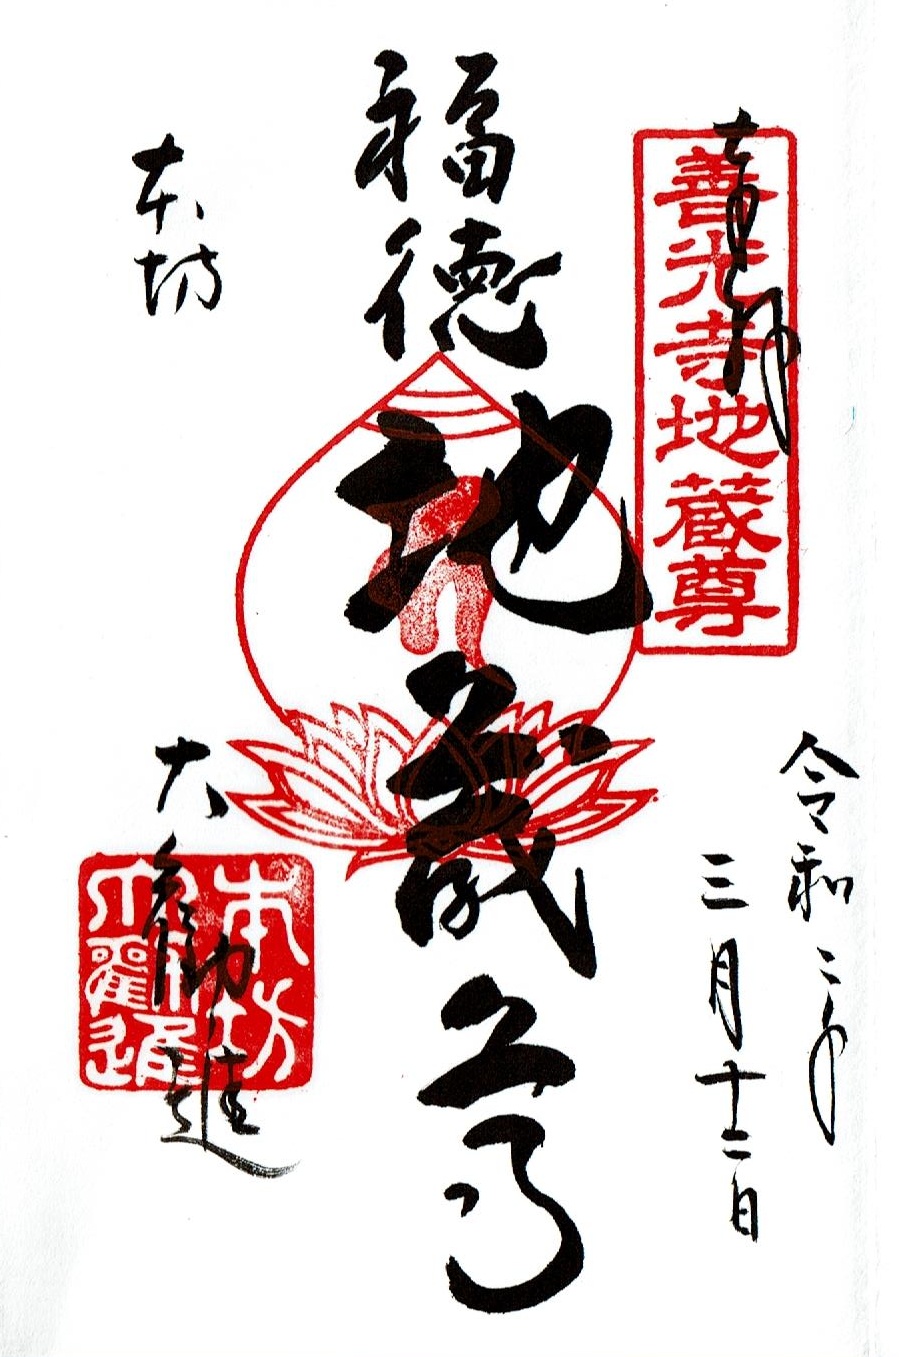 奉拝
善光寺地蔵尊
令和二年
三月十二日
福徳
地蔵尊
本坊
大勧進
本坊
大勧進